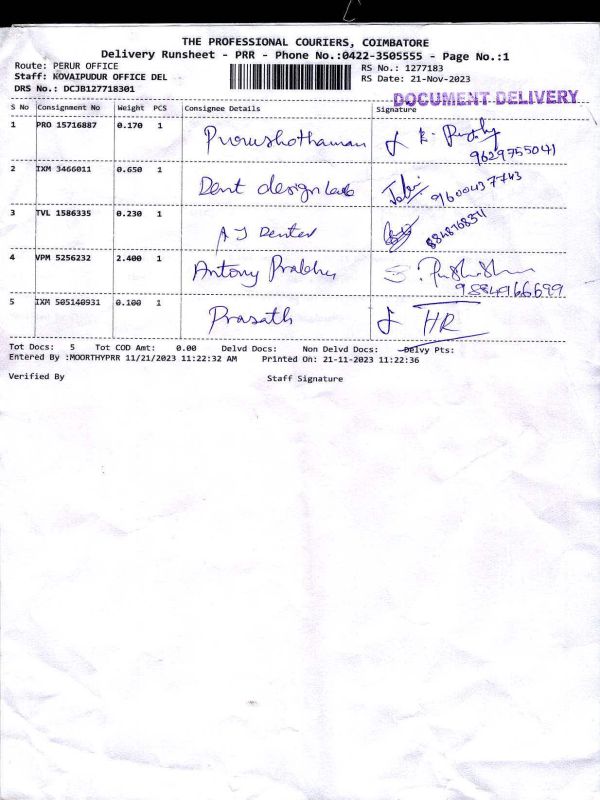 THE PROFESSIONAL COURIERS, COIMBATORE
Delivery Runsheet - PRR - Phone No.:0422-3505555 - Page No.:1
Route: PERUR OFFICE
RS No.: 1277183
Staff: KOVAIPUDUR OFFICE DEL
RS Date: 21-Nov-2023
DRS No.: DCJB127718301
DOCUMENT DELIVERY
S No Consignment No Weight PCS Consignee Details Signature
1 PRO 15716887 0.170 1 Purushothaman
9629755041
2 IXM 3466011 0.650 1 Dent design Lab
9600437743
3 TVL 1586335 0.230 1 AJ Dental
4 VPM 5256232 2.400 1 Antony Prabhu
9884966699
5 IXM 505140931 0.100 1 Prasath HR
Tot Docs: 5 Tot COD Amt: 0.00 Delvd Docs: Non Delvd Docs: Delvy Pts:
Entered By :MOORTHYPRR 11/21/2023 11:22:32 AM Printed On: 21-11-2023 11:22:36
Verified By Staff Signature